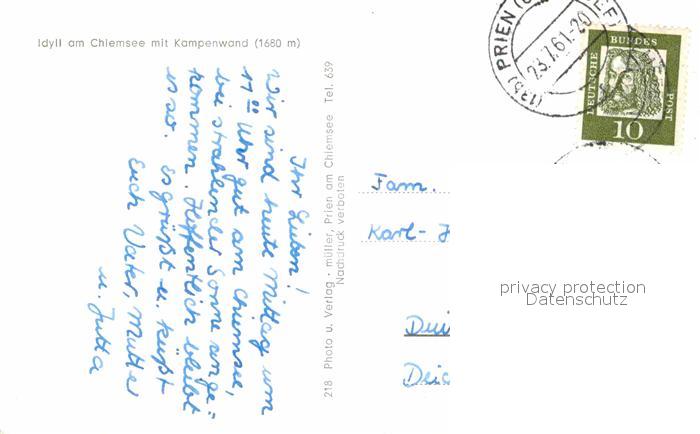 Idyll am Chiemsee mit Kampenwand (1680 m)
Ihr Lieben!
Wir sind heute Mittag um
17 00 Uhr gut am Chiemsee,
bei strahlender Sonne ange=
kommen. Hoffentlich bleibt
es so. Es grüßt u. küßt
Euch Vater, Mutter
u. Jutta
218 Photo u. Verlag · müller, Prien am Chiemsee Tel. 639
Nachdruck verboten
(13b) PRIEN (
23.7.61-20
DEUTSCHE BUNDES POST
10
Fam.
Karl-
privacy protection
Datenschutz